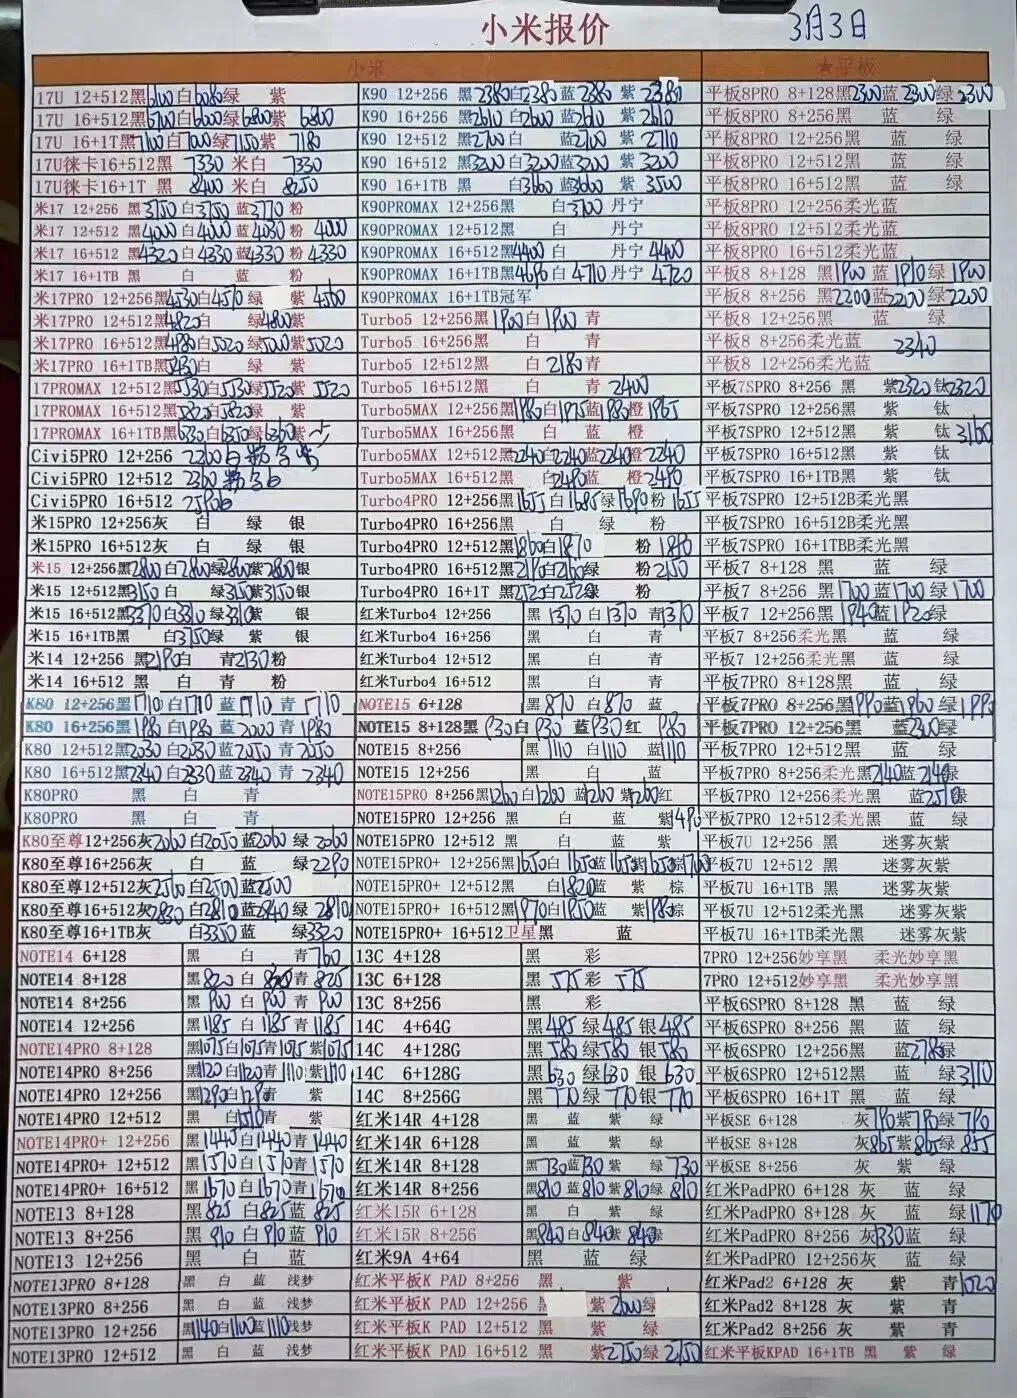 小米报价 3月3日
小米 ★平板
17U 12+512黑6100白6080绿 紫
17U 16+512黑6700白6600绿6800紫 6800
17U 16+1T黑7100白7000绿7150紫 7180
17U徕卡16+512黑 7330 米白 7330
17U徕卡16+1T 黑 8400 米白 8250
米17 12+256 黑3750白3750蓝3770粉
米17 12+512 黑4000白4000蓝4030粉 4000
米17 16+512 黑4320白4330蓝4330粉 4330
米17 16+1TB 黑 白 蓝 粉
米17PRO 12+256黑4530白4570绿 紫 4560
米17PRO 12+512黑4820白 绿4800紫
米17PRO 16+512黑4980白5020绿5000紫5020
米17PRO 16+1TB黑5430白 绿 紫
17PROMAX 12+512黑5530白5530绿5520紫 5520
17PROMAX 16+512黑5820白5820绿 紫
17PROMAX 16+1TB黑6330白6350绿6360紫
Civi5PRO 12+256 2260白
Civi5PRO 12+512 2360
Civi5PRO 16+512
米15PRO 12+256灰 白 绿 银
米15PRO 16+512灰 白 绿 银
米15 12+256黑2800白2800绿2800紫2800银
米15 12+512黑3150 白 绿3150紫3150银
米15 16+512黑3370白3310绿3310紫 银
米15 16+1TB黑 白3750绿 紫 银
米14 12+256 黑2190白 青2130粉
米14 16+512 黑 白 青 粉
K80 12+256黑1710白1710 蓝1710 青 1710
K80 16+256黑1980白1980 蓝2000 青 1980
K80 12+512黑2030白2030 蓝2050 青 2050
K80 16+512黑2340白2330 蓝2340 青 2340
K80PRO 黑 白 青
K80PRO 黑 白 青
K80至尊12+256灰2060白2050蓝2060绿 2060
K80至尊16+256灰 白 蓝 绿2290
K80至尊12+512灰2560白2500蓝2500
K80至尊16+512灰2830白2810蓝2840绿 2810
K80至尊16+1TB灰 白3350蓝 绿3320
NOTE14 6+128 黑 白 青760
NOTE14 8+128 黑820 白 825青 825
NOTE14 8+256 黑900 白900青 900
NOTE14 12+256 黑1185 白 1185青 1185
NOTE14PRO 8+128 黑1075白1075青1075紫1075
NOTE14PRO 8+256 黑1120白1120青1110紫1110
NOTE14PRO 12+256 黑1290白1290青 紫
NOTE14PRO 12+512 黑 白1510青 紫
NOTE14PRO+ 12+256 黑1440白1440青1440
NOTE14PRO+ 12+512 黑1570白1570青1570
NOTE14PRO+ 16+512 黑1670白1670青1670
NOTE13 8+128 黑825 白825蓝 825
NOTE13 8+256 黑910 白910蓝 910
NOTE13 12+256 黑 白 蓝
NOTE13PRO 8+128 黑 白 蓝 浅梦
NOTE13PRO 8+256 黑 白 蓝 浅梦
NOTE13PRO 12+256 黑1140白1100蓝1110浅梦
NOTE13PRO 12+512 黑 白 蓝 浅梦
K90 12+256 黑2380白2380 蓝2380 紫 2380
K90 16+256 黑2610白2600蓝2610 紫 2610
K90 12+512 黑2700白 蓝2700 紫 2710
K90 16+512 黑3200白3200蓝3200 紫 3200
K90 16+1TB 黑 白3660蓝3600 紫 3500
K90PROMAX 12+256黑 白3700 丹宁
K90PROMAX 12+512黑 白 丹宁
K90PROMAX 16+512黑4400白 丹宁 4400
K90PROMAX 16+1TB黑4690白 4710 丹宁 4720
K90PROMAX 16+1TB冠军
Turbo5 12+256黑1900白1900 青
Turbo5 16+256黑 白 青
Turbo5 12+512黑 白 2180青
Turbo5 16+512黑 白 青 2400
Turbo5MAX 12+256黑1980白1975蓝1980橙1965
Turbo5MAX 16+256黑 白 蓝 橙
Turbo5MAX 12+512黑2240白2240蓝2240橙2240
Turbo5MAX 16+512黑 白2490蓝 橙2490
Turbo4PRO 12+256黑1655白1685绿1690粉 1655
Turbo4PRO 16+256黑 白 绿 粉
Turbo4PRO 12+512黑1860白1870 粉 1850
Turbo4PRO 16+512黑2190白2160绿 粉 2150
Turbo4PRO 16+1T黑2520白2520绿 粉
红米Turbo4 12+256 黑1370 白1370 青1370
红米Turbo4 16+256 黑 白 青
红米Turbo4 12+512 黑 白 青
红米Turbo4 16+512 黑 白 青
NOTE15 6+128 黑870 白870 蓝
NOTE15 8+128黑930白930蓝930红 980
NOTE15 8+256 黑1110白1110 蓝1110
NOTE15 12+256 黑 白 蓝
NOTE15PRO 8+256黑1260白1260 蓝1260 紫1260红
NOTE15PRO 12+256 黑 白 蓝 紫1490
NOTE15PRO 12+512 黑 白 蓝 紫
NOTE15PRO+ 12+256黑1650白1650蓝1655紫1650棕1700
NOTE15PRO+ 12+512黑 白1820蓝 紫 棕
NOTE15PRO+ 16+512黑1970白1950蓝 紫1980棕
NOTE15PRO+ 16+512卫星黑 蓝
13C 4+128 黑 彩
13C 6+128 黑 575 彩 575
13C 8+256 黑 彩
14C 4+64G 黑485绿485银485
14C 4+128G 黑580绿580 银580
14C 6+128G 黑630 绿630 银630
14C 8+256G 黑770绿770银770
红米14R 4+128 黑 蓝 紫 绿
红米14R 6+128 黑 蓝 紫 绿
红米14R 8+128 黑730蓝730紫 绿 730
红米14R 8+256 黑810 蓝810紫810绿 810
红米15R 6+128 黑 白 紫 绿
红米15R 8+256 黑840白840紫840绿
红米9A 4+64 黑 蓝 绿
红米平板K PAD 8+256 黑 紫
红米平板K PAD 12+256 黑 紫2600绿
红米平板K PAD 12+512 黑 紫 绿
红米平板K PAD 16+512 黑 紫2750绿2750
平板8PRO 8+128黑2300蓝2300绿2300
平板8PRO 8+256黑 蓝 绿
平板8PRO 12+256黑 蓝 绿
平板8PRO 12+512黑 蓝 绿
平板8PRO 16+512黑 蓝 绿
平板8PRO 12+256柔光蓝
平板8PRO 12+512柔光蓝
平板8PRO 16+512柔光蓝
平板8 8+128 黑1900蓝1910绿1900
平板8 8+256 黑2200蓝2200绿2200
平板8 12+256黑 蓝 绿
平板8 8+256柔光蓝 2340
平板8 12+256柔光蓝
平板7SPRO 8+256 黑 紫2320钛2320
平板7SPRO 12+256黑 紫 钛
平板7SPRO 12+512黑 紫 钛3160
平板7SPRO 16+512黑 紫 钛
平板7SPRO 16+1TB黑 紫 钛
平板7SPRO 12+512B柔光黑
平板7SPRO 16+512B柔光黑
平板7SPRO 16+1TBB柔光黑
平板7 8+128 黑 蓝 绿
平板7 8+256 黑1700蓝1700绿1700
平板7 12+256黑1940蓝1920绿
平板7 8+256柔光黑 蓝 绿
平板7 12+256柔光黑 蓝 绿
平板7PRO 8+128黑 蓝 绿
平板7PRO 8+256黑1990蓝1960绿1990
平板7PRO 12+256黑 蓝2300绿
平板7PRO 12+512黑 蓝 绿
平板7PRO 8+256柔光黑2140蓝2140绿
平板7PRO 12+256柔光黑 蓝2510绿
平板7PRO 12+512柔光黑 蓝 绿
平板7U 12+256 黑 迷雾灰紫
平板7U 12+512 黑 迷雾灰紫
平板7U 16+1TB 黑 迷雾灰紫
平板7U 12+512柔光黑 迷雾灰紫
平板7U 16+1TB柔光黑 迷雾灰紫
7PRO 12+256妙享黑 柔光妙享黑
7PRO 12+512妙享黑 柔光妙享黑
平板6SPRO 8+128 黑 蓝 绿
平板6SPRO 8+256 黑 蓝 绿
平板6SPRO 12+256黑 蓝2780绿
平板6SPRO 12+512黑 蓝 绿3110
平板6SPRO 16+1T黑 蓝 绿
平板SE 6+128 灰790紫790绿 790
平板SE 8+128 灰865紫865绿 855
平板SE 8+256 灰 紫 绿
红米PadPRO 6+128 灰 蓝 绿
红米PadPRO 8+128 灰 蓝 绿1170
红米PadPRO 8+256 灰1330蓝 绿
红米PadPRO 12+256灰 蓝 绿
红米Pad2 6+128 灰 紫 青1020
红米Pad2 8+128 灰 紫 青
红米Pad2 8+256 灰 紫 青
红米平板KPAD 16+1TB 黑 紫 绿